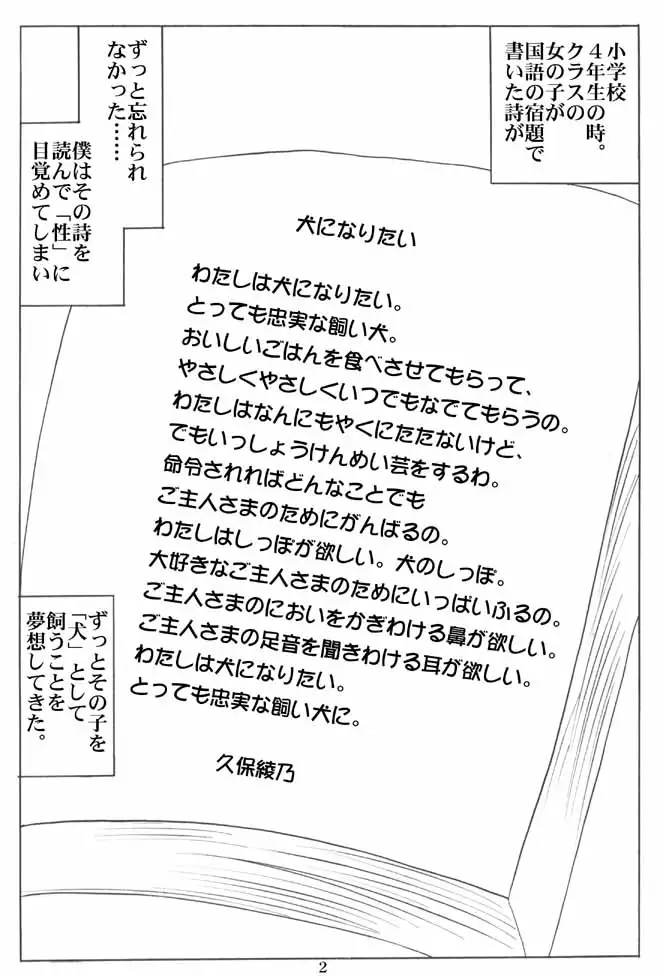 小学校
4年生の時。
クラスの
女の子が
国語の宿題で
書いた詩が
ずっと忘れられ
なかった……
僕はその詩を
読んで「性」に
目覚めてしまい
犬になりたい
わたしは犬になりたい。
とっても忠実な飼い犬。
おいしいごはんを食べさせてもらって、
やさしくやさしくいつでもなでてもらうの。
わたしはなんにもやくにたたないけど、
でもいっしょうけんめい芸をするわ。
命令されればどんなことでも
ご主人さまのためにがんばるの。
わたしはしっぽが欲しい。犬のしっぽ。
大好きなご主人さまのためにいっぱいふるの。
ご主人さまのにおいをかぎわける鼻が欲しい。
ご主人さまの足音を聞きわける耳が欲しい。
わたしは犬になりたい。
とっても忠実な飼い犬に。
久保綾乃
ずっとその子を
「犬」として
飼うことを
夢想してきた。
2